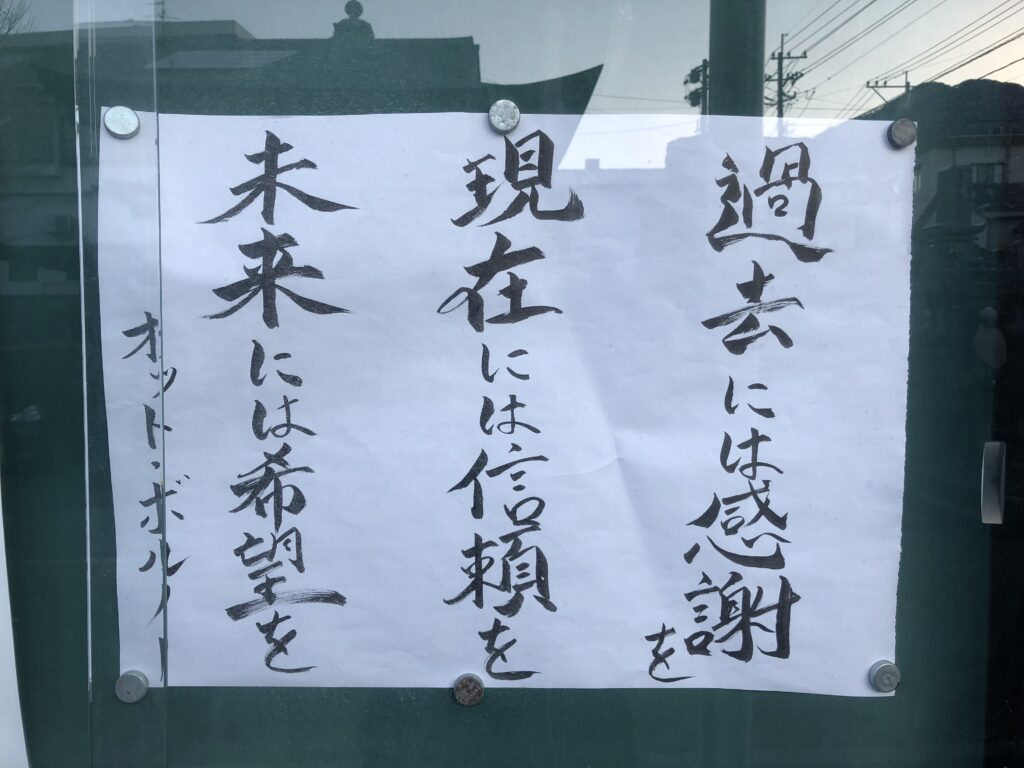 過去には感謝を
現在には信頼を
未来には希望を
オットー・ボルノー